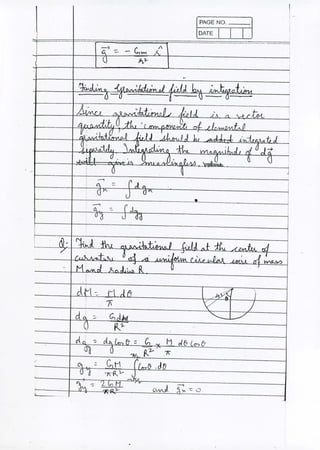 PAGE NO.
DATE
g⃗ = - Gm/r² r̂
Finding Gravitational field by integration
Since gravitational field is a vector
quantity, the components of elemental
gravitational field should be added integrated
seperately. Integrating the magnitude of dg⃗
will give is meaningless.
g⃗x = ∫dgx
g⃗y = ∫dgy
Q: Find the gravitational field at the center of
curvature of a uniform circular wire of mass
M and radius R.
dM = M dθ / π
dg = G dM / R²
dg y = dg Cosθ = G/R² × M/π dθ Cosθ
gy = GM/πR² ∫Cosθ dθ
gy = 2GM/πR² and g⃗x = 0